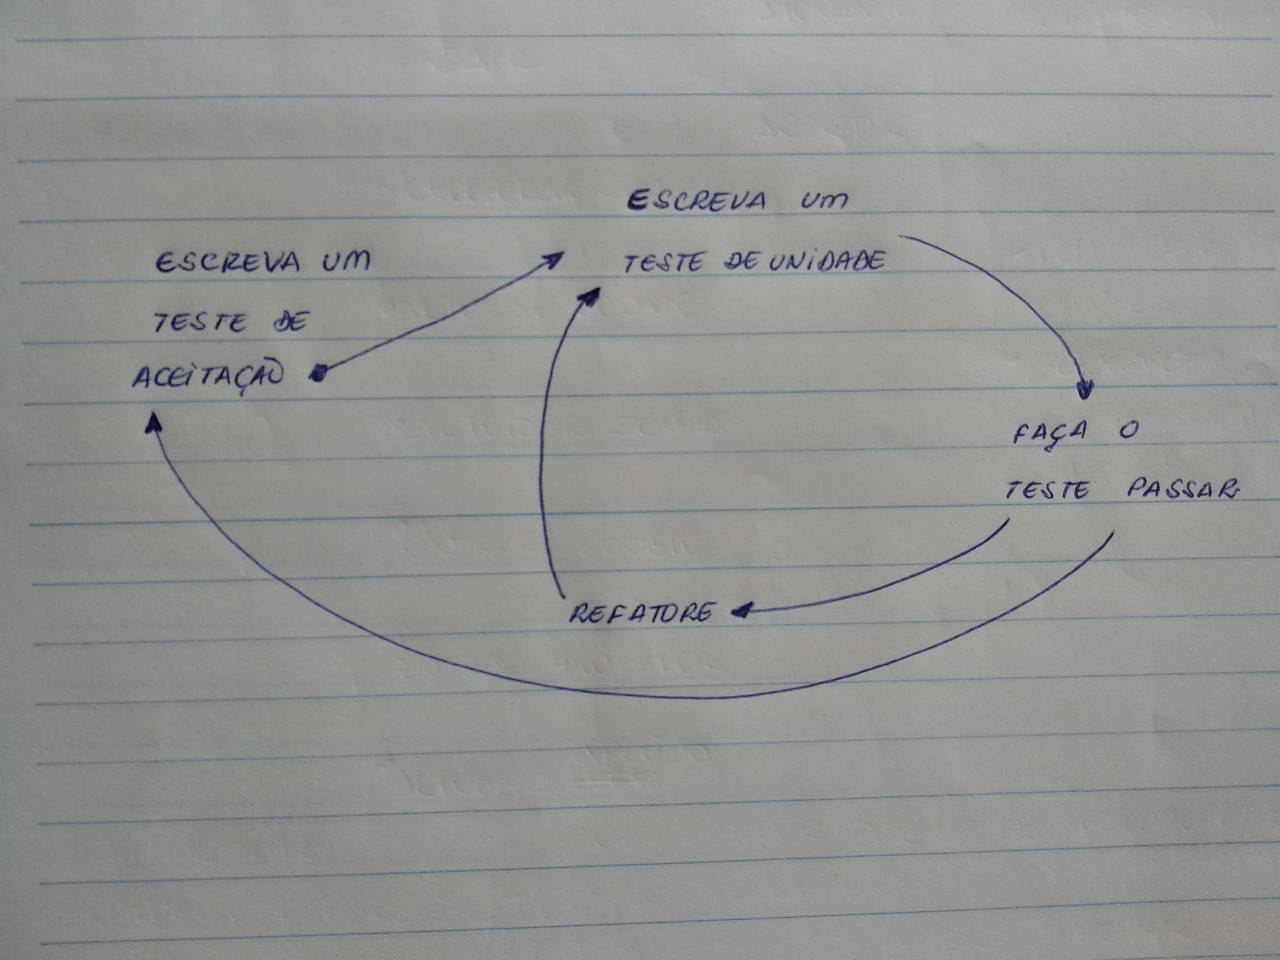 ESCREVA UM
TESTE DE
ACEITAÇÃO
ESCREVA UM
TESTE DE UNIDADE
FAÇA O
TESTE PASSAR
REFATORE